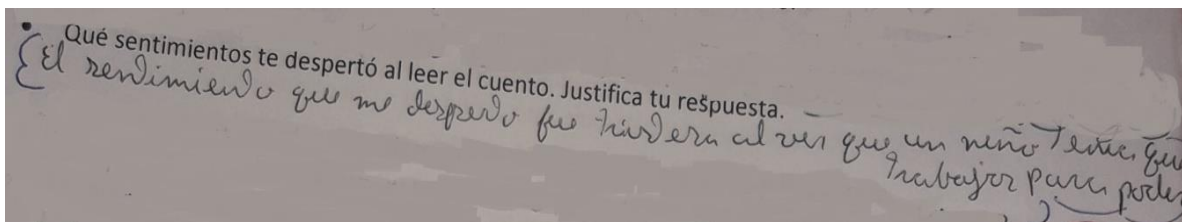 Qué sentimientos te despertó al leer el cuento. Justifica tu respuesta.
El sentimiento que me desperto fue tristeza al ver que un niño Tenia que
trabajar para poder